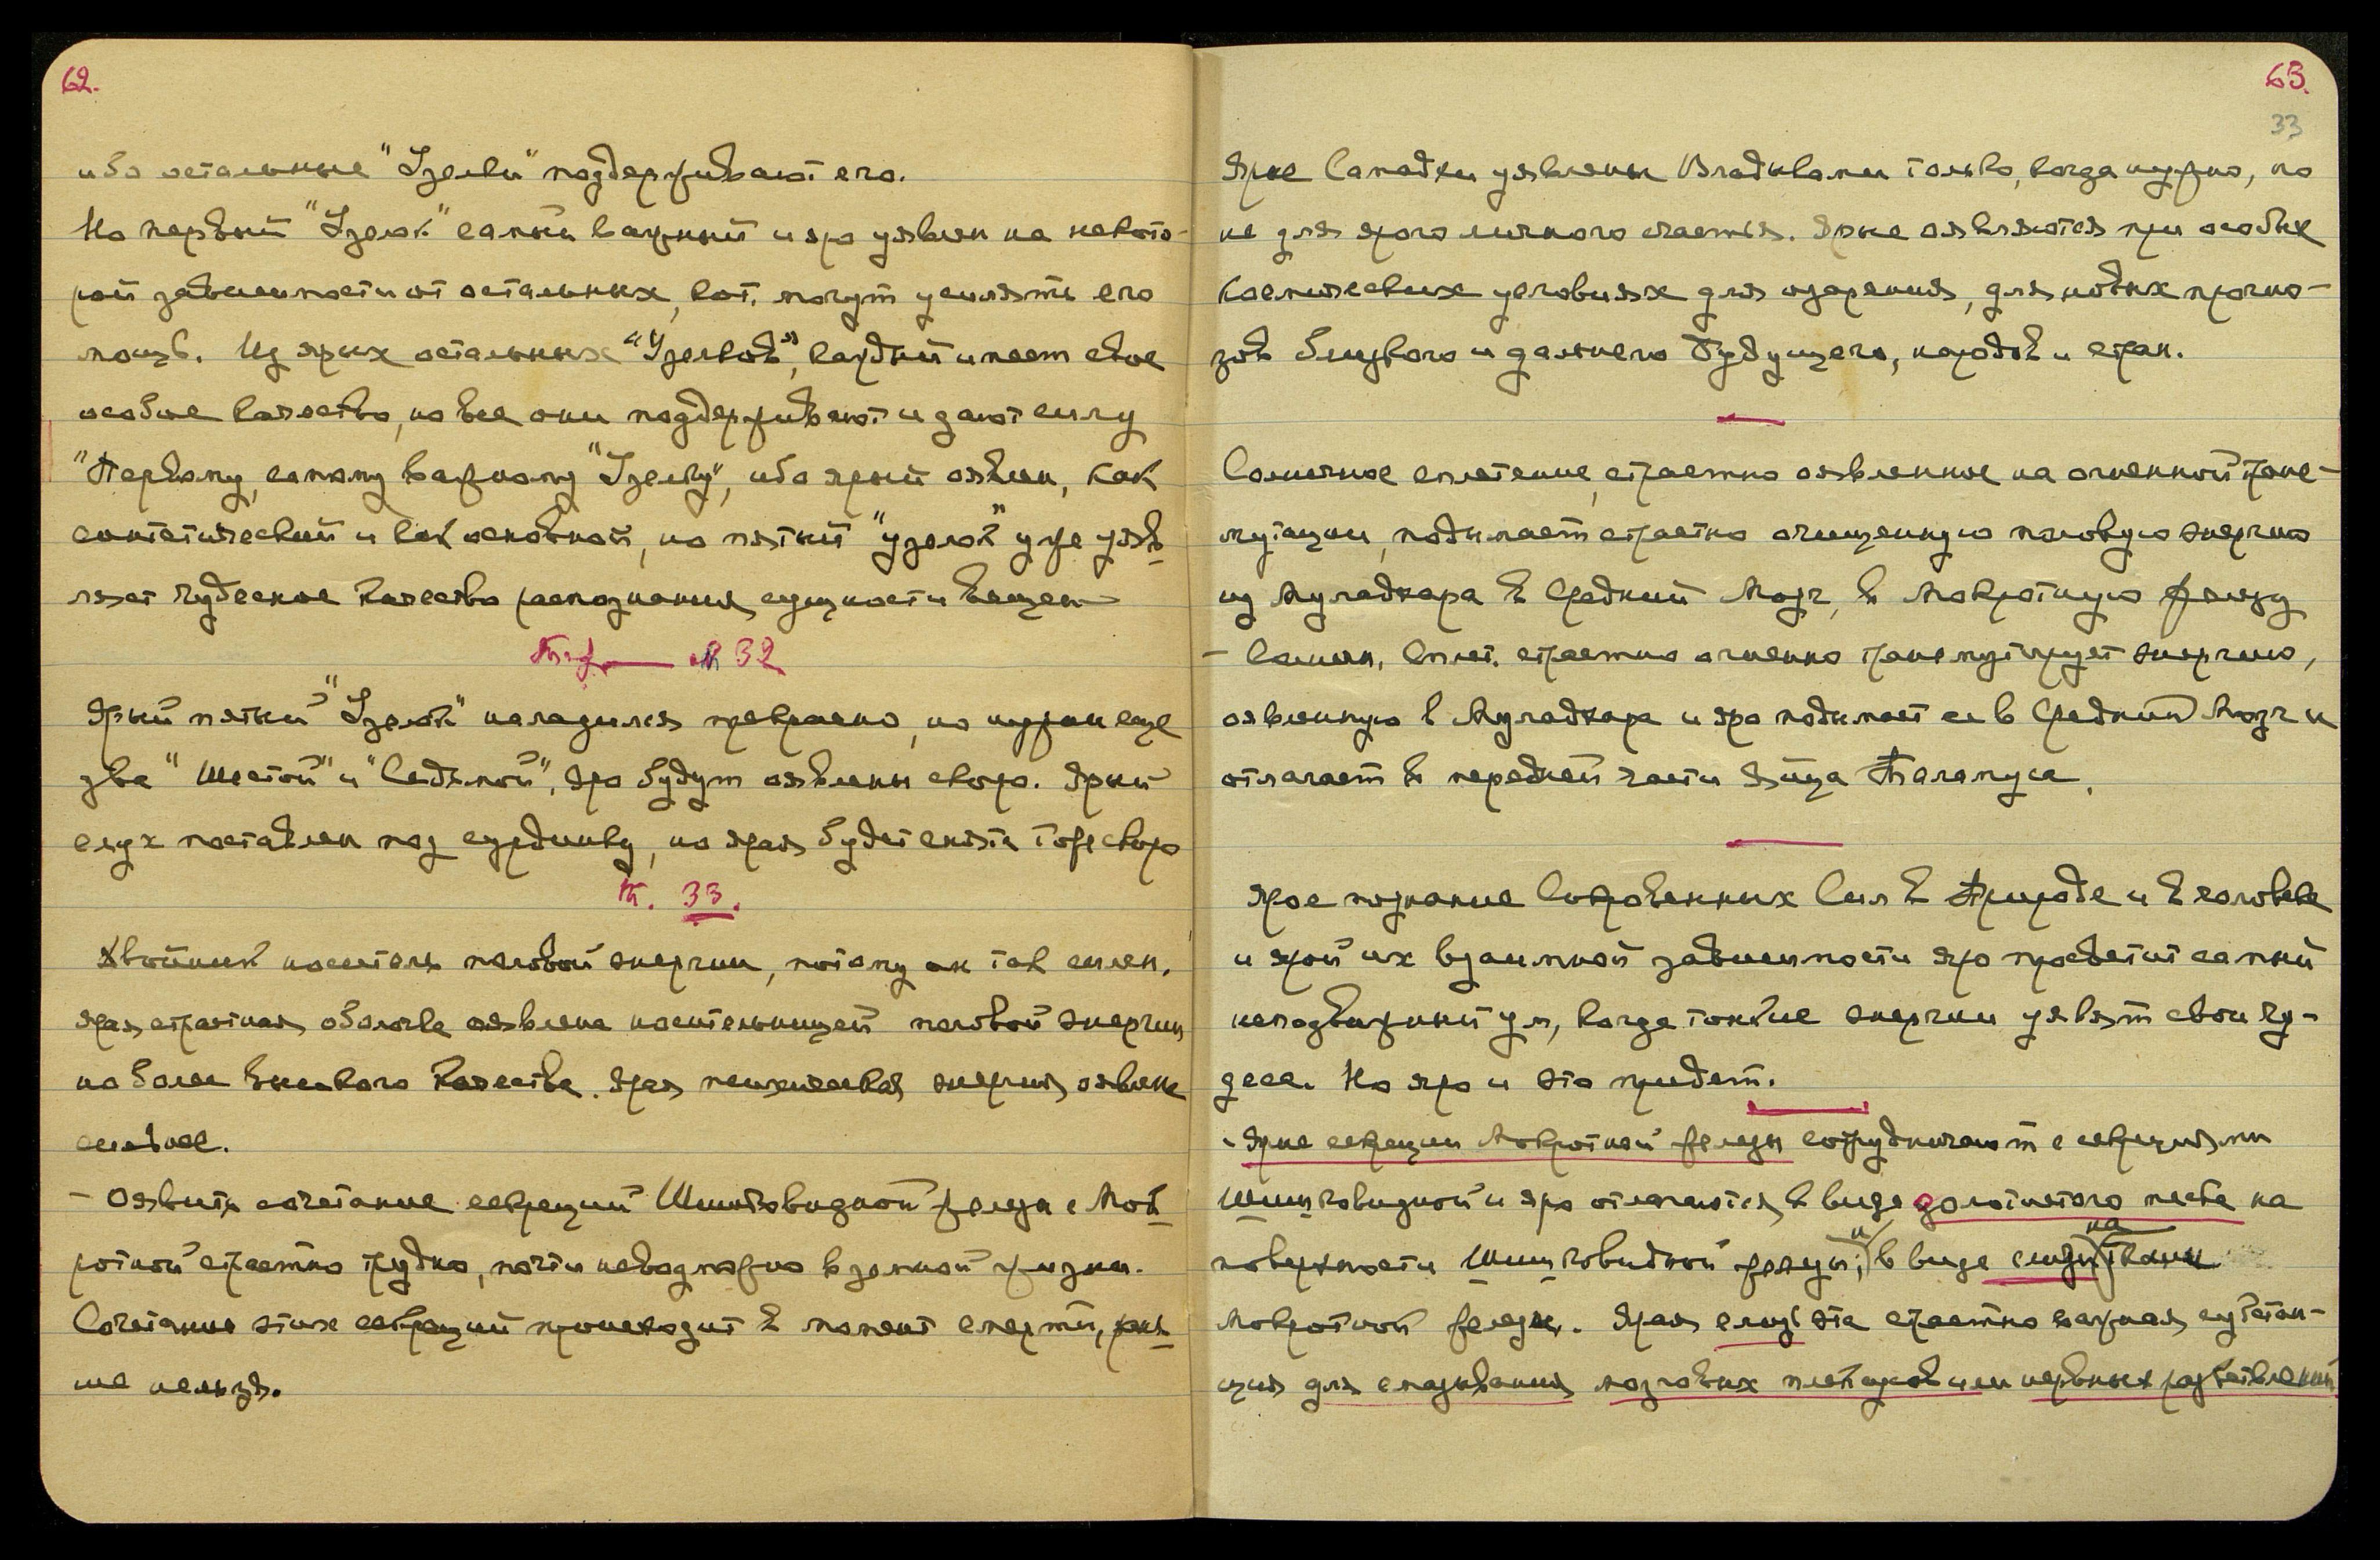 62.
ибо остальные "Узелки" поддерживают его.
Но первый "Узелок" самый важный и яро уявлен на некото-
рой зависимости от остальных, кот. могут усилять его
мощь. Из ярых остальных "Узелков", каждый имеет свое
особое качество, но все они поддерживают и дают силу
"Первому, самому важному "Узелку", ибо ярый оявлен, как
синтетический и как основной, но пятый "узелок" уже уяв-
ляет чудесное качество распознания сущности вещей
№ 32
Ярый пятый "Узелок" наладился прекрасно, но нужны еще
два "Шестой" и "Седьмой", яро будут оявлены скоро. Ярый
слух поставлен под сурдинку, но ярая будет снята тоже скоро
Т. 33.
Двойник носитель половой энергии, потому он так силен.
Ярая страстная оболочка оявлена носительницей половой энергии
но более высокого качества. Ярая психическая энергия оявлена
сильнее.
- Оявить сочетание секреций Шишковидной железы с Мок-
ротной страстно трудно, почти невозможно в земной жизни.
Сочетание этих секреций происходит в момент смерти, рань-
ше нельзя.
63.
33
Ярые Самадхи уявлены Владыками только, когда нужно, но
не для ярого личного счастья. Ярые оявляются при особых
Космических условиях для озарения, для новых прогно-
зов близкого и дальнего Будущего, народов и стран.
Солнечное сплетение, страстно оявленное на огненной транс-
мутации, поднимает страстно очищенную половую энергию
из Муладхара в Средний Мозг, в Мокротную железу
- Солнечн. Сплет. страстно огненно трансмутирует энергию,
оявленную в Муладхаре и яро поднимает ее в Средний Мозг и
отлагает в передней части Яйца Таламуса.
Ярое познание Сокровенных Сил в Природе и в человеке
и ярой их взаимной зависимости яро просветит самый
неподвижный ум, когда тонкие энергии уявят свои чу-
деса. Но яро и это придет.
- Ярые секреции Мокротной железы сотрудничают с секрециями
Шишковидной и яро отлагаются в виде золотистого песка на
поверхности Шишковидной железы; и в виде слизи на ткани
Мокротной железы. Ярая слизь эта страстно важная субстан-
ция для смазывания мозговых плексусов или нервных разветвлений